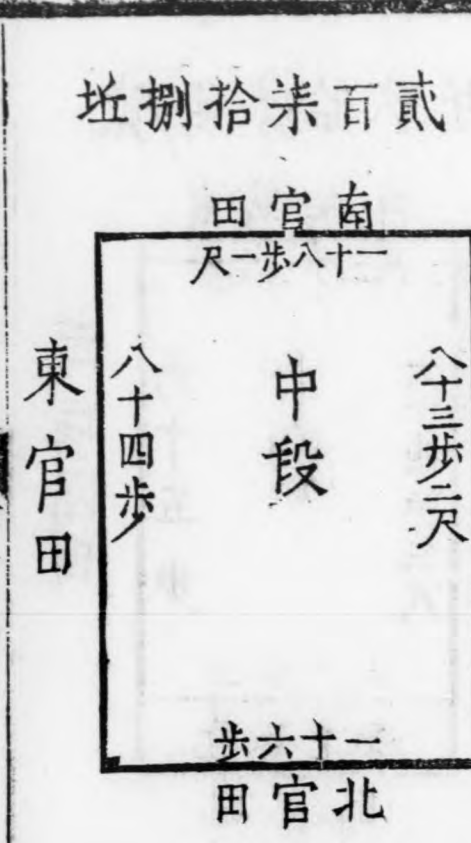 貳百柒拾捌坵
南官田
一十八步一尺
八十三步二尺
中段
八十四步
東官田
一十六步
北官田